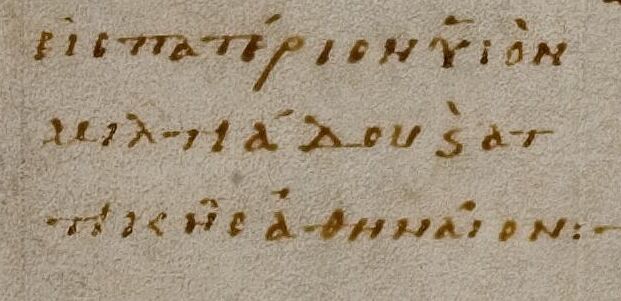 εἰς πατέριον ὑιὸν
μιλτιάδου ϗ̀ ατ
τικῆς ἀθηναῖον:-